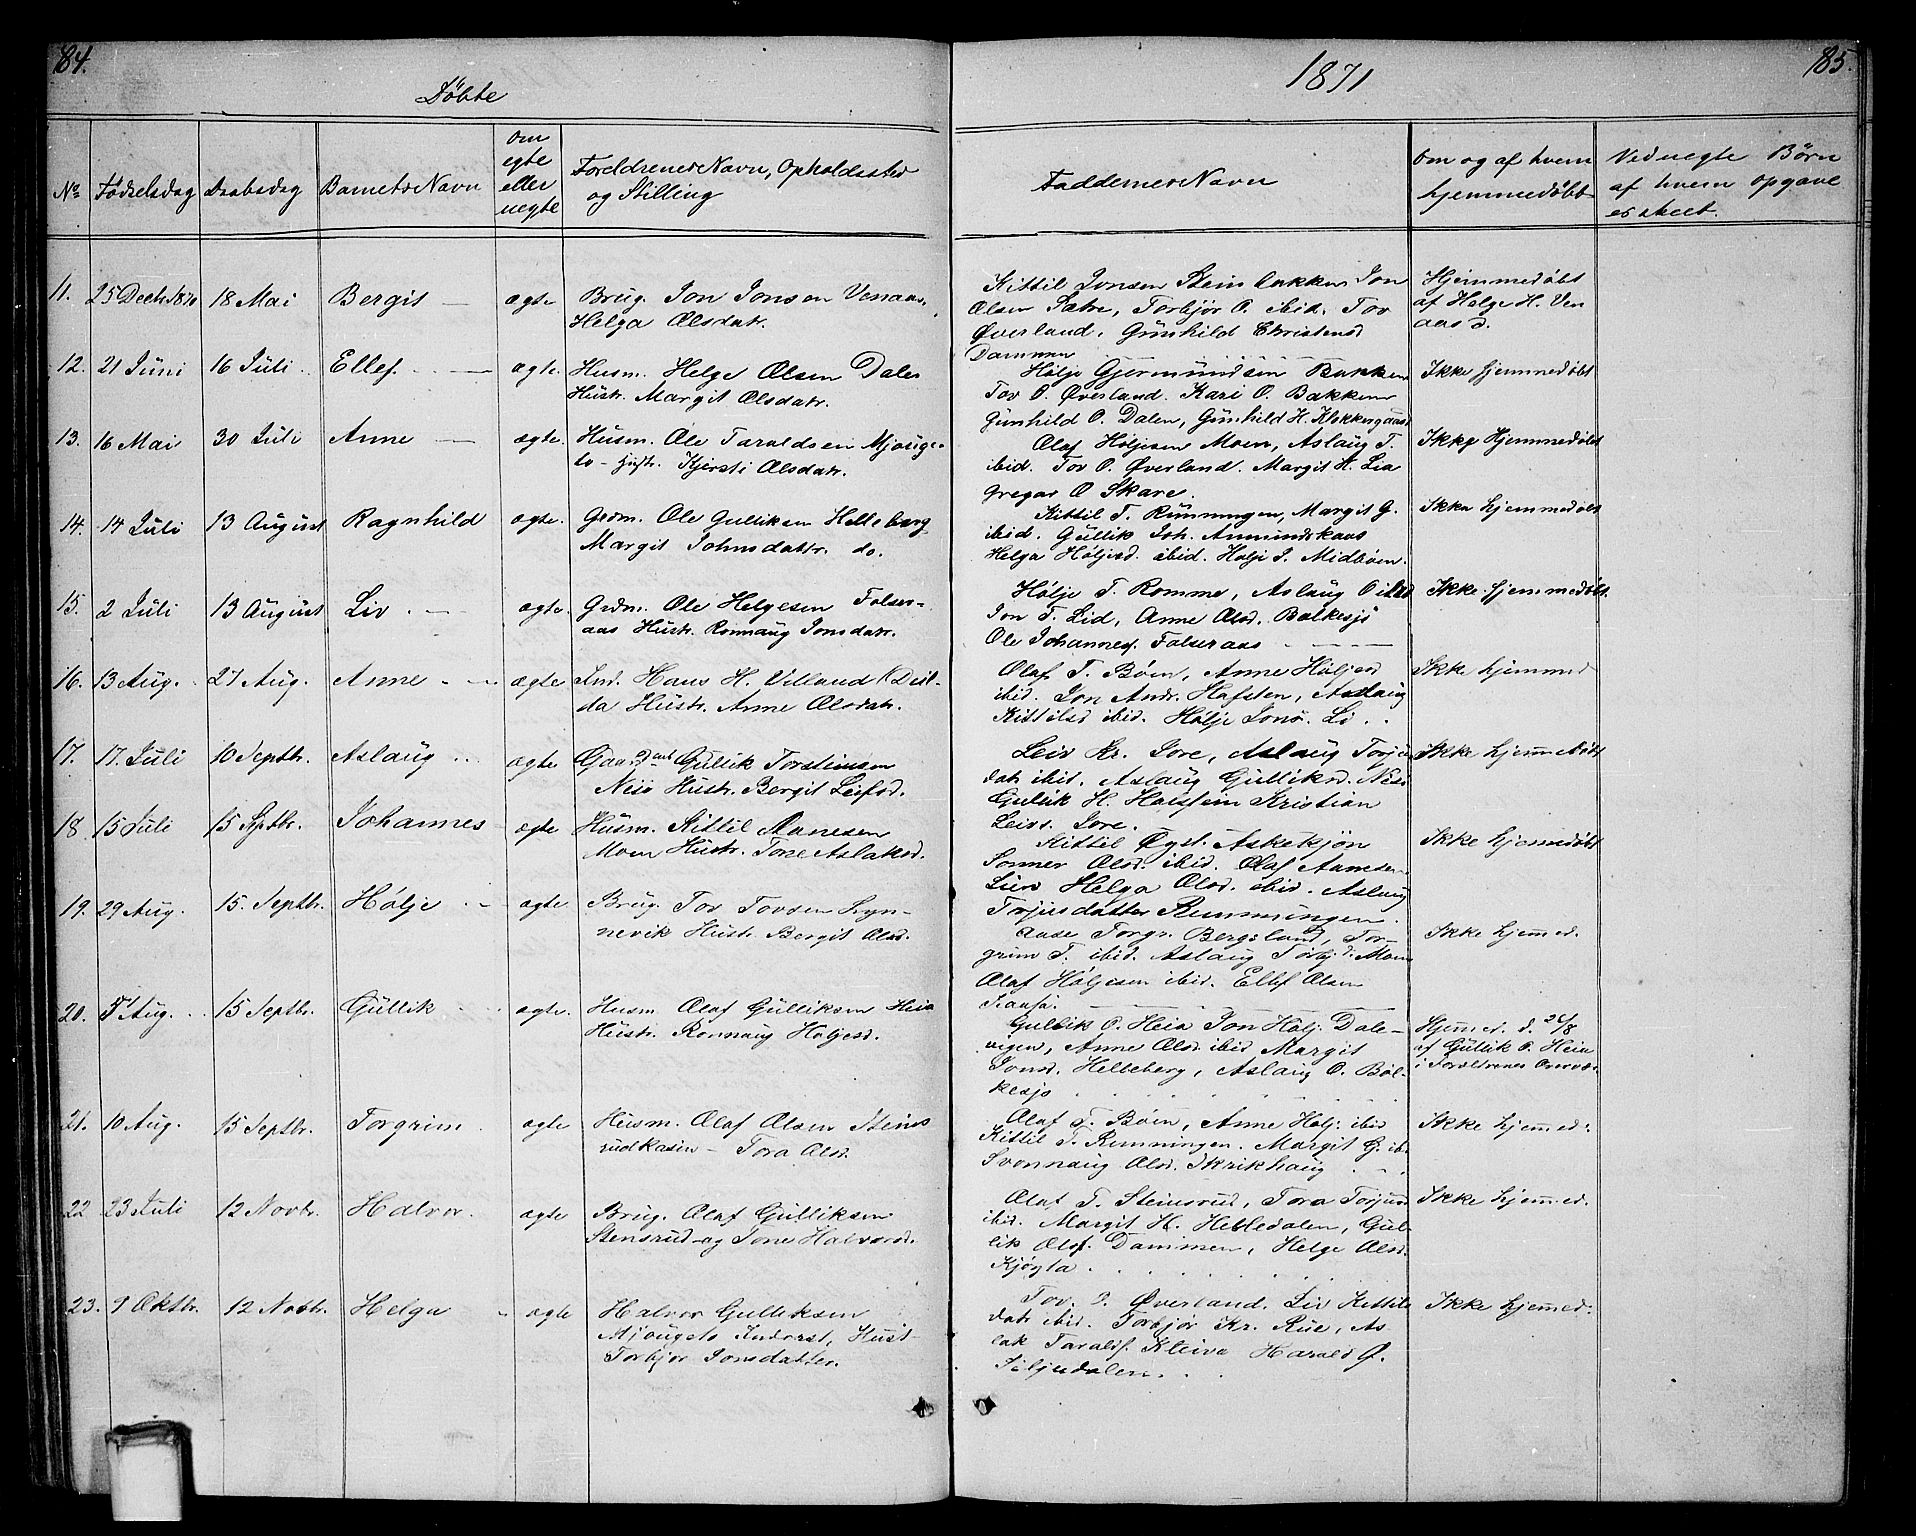 84.
Döbte
1871
85.
No Födselsdag Daabsdag Barnets Navn om egte eller uegte Foreldrenes Navn, Opholdssted og Stilling
Faddernes Navn om og af hvem hjemmedøbt Ved uegte Børn af hvem opgave er skeet.
11. 25 Decb 1870 18 Mai Bergit ægte Brug. Jon Jonsen Venaas,
Helga Olsdatr.
Kittil Jonsen Steinbakken Jon
Olsen Satre, Torbjør O. ibid. Tov
Øverland, Gunhild Christensd
Dammen
Hjemmedøbt
af Helge H. Ven
aas d.
12. 21 Juni 16 Juli Ellef. ægte. Husm. Helge Olsen Dalen
Hustr. Margit Olsdatr.
Hølje Gjermundsen Bakken
Tov O. Øverland. Kari O. Bakken
Gunhild O. Dalen, Gunhild H. Klokkengaard
Ikke hjemmedøbt
13. 16 Mai 30 Juli Anne ægte. Husm. Ole Taraldsen Mjouge-
to - Hustr. Kjersti Olsdatr.
Olaf Höljesen Moen, Aslaug T.
ibid. Tov O. Øverland. Margit H. Lia
Gregar O Skare.
Ikke Hjemmedøbt
14. 14 Juli 13 August Ragnhild ægte. Grdm. Ole Gulliksen Helleberg
Margit Johnsdattr. do.
Kittil T. Runningen, Margit G.
ibid. Gullik Joh. Anmundsaas
Helga Höljesd. ibid. Holje J. Midbøen.
Ikke hjemmedøbt
15. 2 Juli 13 August Liv ægte. Grdm. Ole Helgesen Folser-
aas Hustr. Rønnaug Jonsdatr.
Hölje T. Romme, Aslaug O ibid
Jon T. Lid, Anne Olsd. Bolkesjø
Ole Johannes. Folseraas
Ikke hjemmedøbt
16. 13 Aug. 27 Aug. Anne ægte Ind. Hans H. Villand
da Hustr. Anne Olsdatr.
Olaf T. Bøen, Anne Höljesd
ibid. Jon Andr. Hafsten, Aslaug
Kittilsd ibid. Hølje Jons. Li
Ikke hjemmed
17. 17. Juli 10 Septbr. Aslaug ægte Gaardm. Gullik Torstinsen
Nesi Hustr. Bergit Leifsd.
Leiv Kr. Sore, Aslaug Torju
datr ibid. Aslaug Gulliksd. Nesi
Gullik H. Halstein Kristian
Leivs. Sore.
Ikke hjemmedøbt
18. 15 Juli 15 Septbr. Johannes ægte Husm. Kittil Aanesen
Moen Hustr. Tone Aslaksd.
Kittil Øyst. Askeksjøn
Sonner Olsd. ibid. Olaf Aamesen
Lien Helga Olsd. ibid. Aslaug
Torjusdatter Runningen.
Ikke hjemmedøbt
19. 29 Aug. 15. Septbr. Hölje ægte Brug. Tov Tovsen Synn-
nevik Hustr. Bergit Olsd.
Aase Torgr. Bergsland, Tor-
grim T. ibid. Aslaug Torbj.d. Moen
Olaf Höljesen ibid. Ellef Olsen
Ikke hjemmed.
20. 5 Aug. 15 Septbr. Gullik ægte. Husm. Olaf Gulliksen Heia
Hustr. Rønnaug Höljesd.
Gullik O. Heia Jon Hölj. Dale-
vigen, Anne Olsd. ibid Margit
Jonsd. Helleberg, Aslaug O. Bøl-
kesjø
Hjemmed. d. 26/8
af Gullik O. Heia
i Foreldrenes Overvær
21. 10 Aug. 15 Septbr. Torgrim ægte Husm. Olaf Olsen Steins
rudkasin - Tora Olsd.
Olaf T. Bøen, Anne Hölj: ibid
Kittil T. Runningen. Margit G. ib.
Svonnaug Olsd. Skrikhaug
Ikke hjemmed:
22 23 Juli 12 Novbr. Halvor. ægte Brug. Olaf Gulliksen
Stensrud og Tone Halvorsd.
Olaf T. Steinsrud, Tora Torjusd
ibid. Margit H. Helledalen, Gul-
lik Olsf. Dammen, Helge Olsd.
Kjøgta
Ikke hjemmed.
23. 9 Oktbr. 12 Novbr. Helga ægte Halvor Gulliksen
Mjougeto Inderst, Hust-
Torbjør Jonsdatter.
Tov O. Øverland. Liv Kittils
datr ibid. Torbjør Kr. Rue, As
lak Taraldf. Kleiva Harald O.
Siljudalen.
Ikke hjemmed: